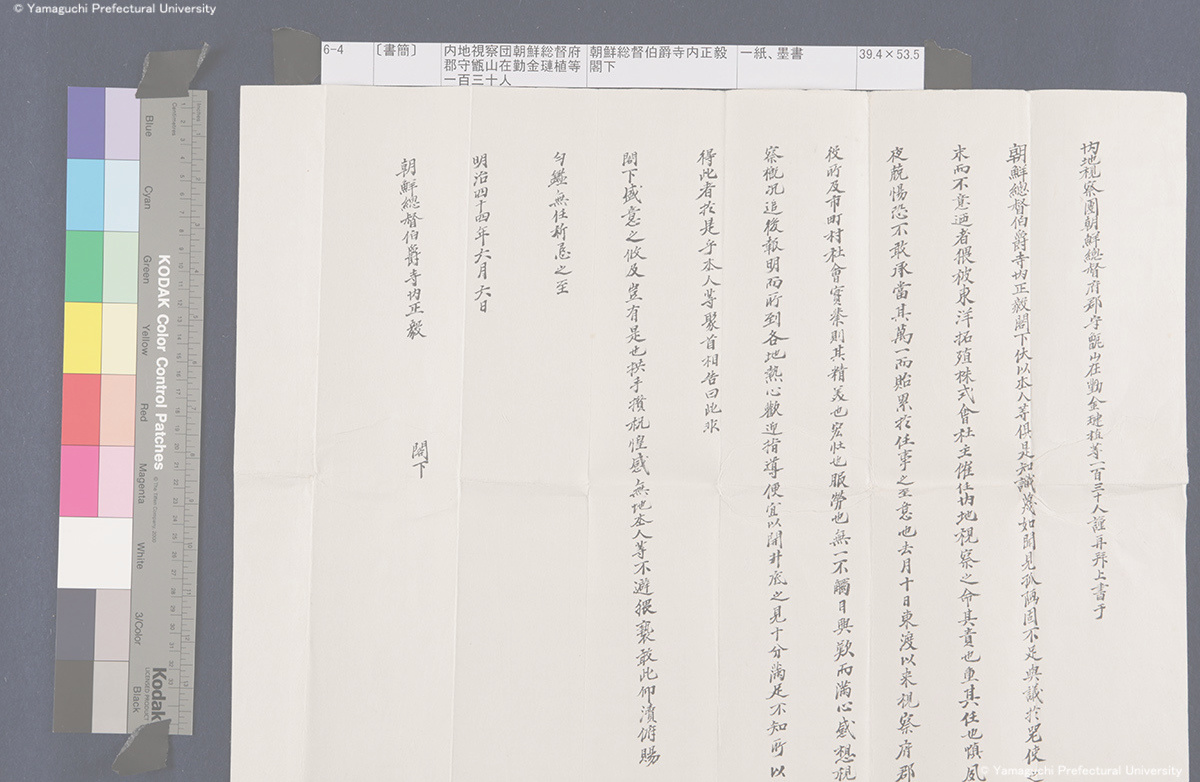 © Yamaguchi Prefectural University
6-4
〔書簡〕
内地視察団朝鮮総督府
郡守甑山在勤金璉植等
一百三十人
朝鮮総督伯爵寺内正毅
閣下
一紙、墨書
39.4×53.5
内地視察團朝鮮總督府郡守甑山在勤金璉植等一百三十人謹再拜上書于
朝鮮總督伯爵寺內正毅閣下伏以本人等俱是知識蔑如聞見孤陋固不足與議於
末而不意迺者偎被東洋拓殖株式會社主催任內地視察之命其責也重其任也慎夙
夜兢惕恐不敢承當其萬一而貽累於任事之至意也去月十日東渡以來視察府郡
役所及市町村社會實業則其精美也宏壯也服勞也無一不觸目興歎而滿心感想視
察槪況追後報明而所到各地熱心歡迎指導便宜以開井底之見十分滿足不知所以
得此者於是乎本人等聚首相告曰此非
閣下盛意之攸及豈有是也拱手攢祝惶感無地本人等不避猥褻敢此仰瀆俯賜
勻鑑無任祈
之至
明治四十四年六月六日
朝鮮總督伯爵寺內正毅
閣下
Inches
Centimetres
KODAK Color Control Patches
© The Tiffen Company, 2000
Blue
Cyan
Green
Yellow
Red
Magenta
White
3/Color
Black
Kodak
LICENSED PRODUCT
© Yamaguchi Prefectural University